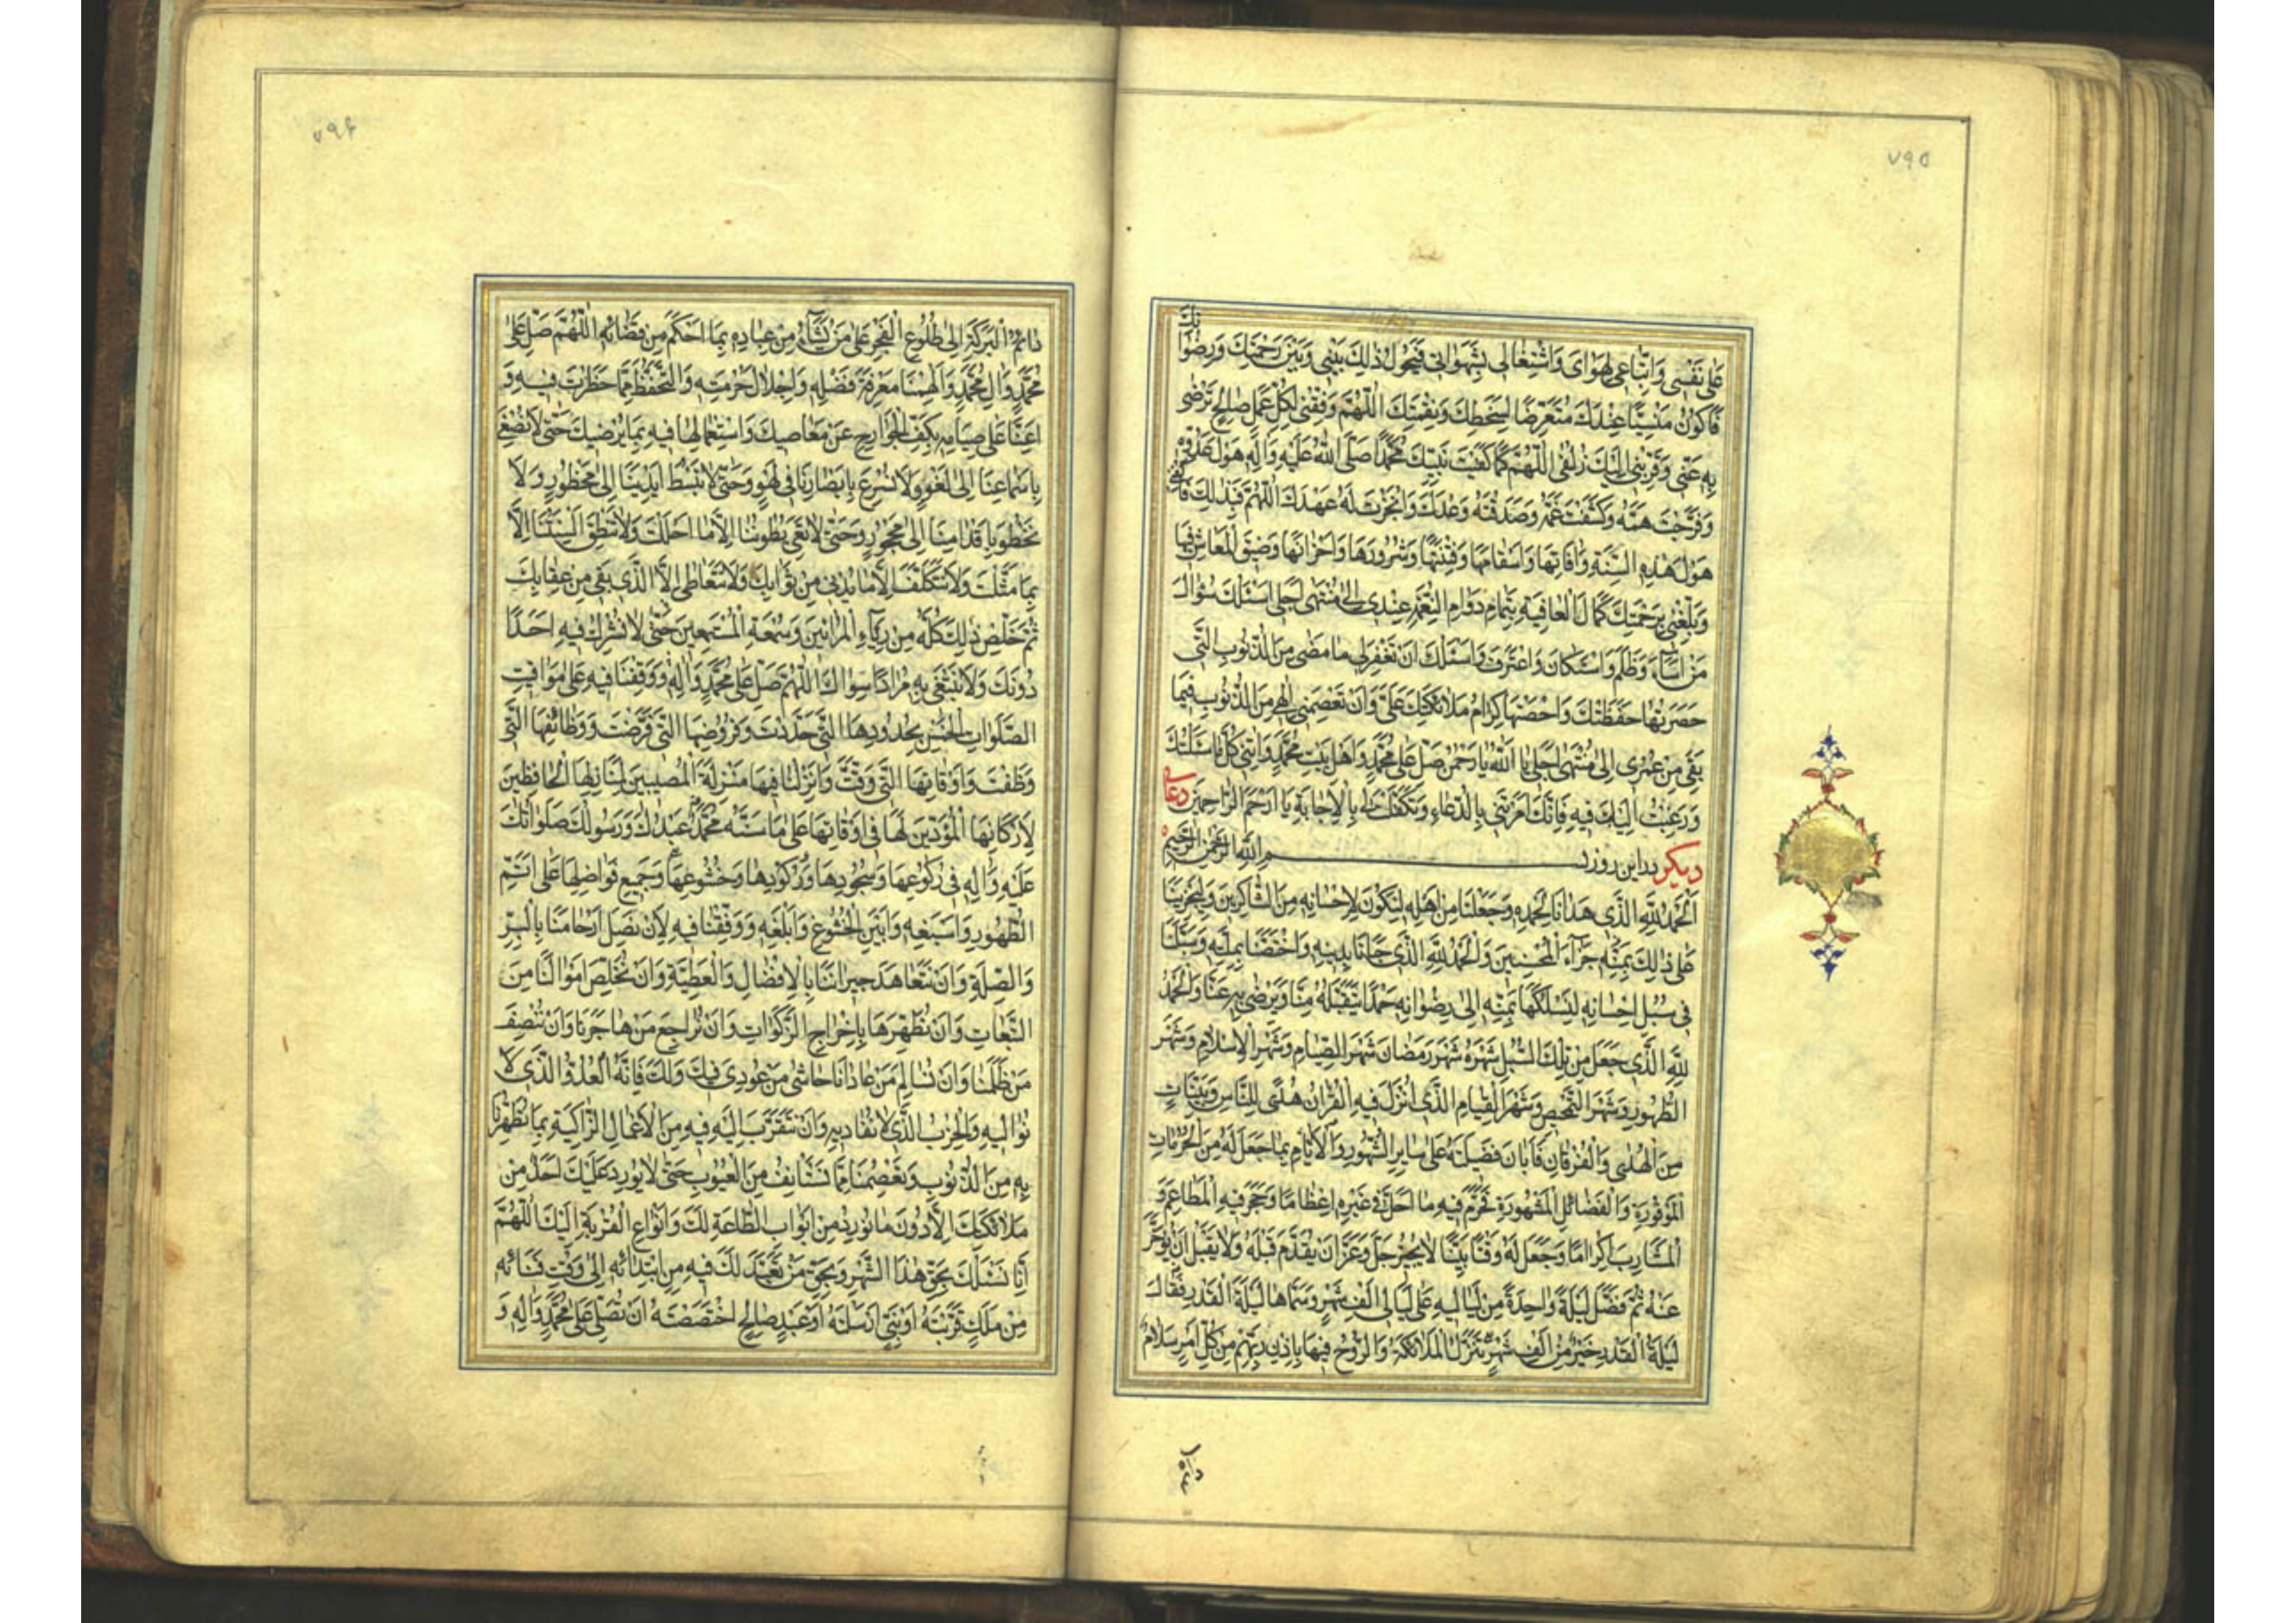 ٧٩٥
نك
على نَفْسى وَاتِّباعى لِهَواىَ وَاشْتِغالى بِشَهَواتى فَيَحُولُ ذٰلِكَ بَيْنى وَبَيْنَ رَحْمَتِكَ وَرِضْوا
فَاَكُونُ مَنْسِيًّا عِنْدَكَ مُتَعَرِّضًا لِسَخَطِكَ وَنِقْمَتِكَ اَللّٰهُمَّ وَفِّقْنى لِكُلِّ عَمَلٍ صالِحٍ تَرْضى
بِهِ عَنّى وَقَرِّبْنى اِلَيْكَ زُلْفى اَللّٰهُمَّ كَما كَفَيْتَ نَبِيَّكَ مُحَمَّدًا صَلَّى اللهُ عَلَيْهِ وَاٰلِهِ هَوْلَ عَدُوِّهِ
وَفَرَّجْتَ هَمَّهُ وَكَشَفْتَ غَمَّهُ وَصَدَقْتَهُ وَعْدَكَ وَاَنْجَزْتَ لَهُ عَهْدَكَ اَللّٰهُمَّ فَبِذٰلِكَ فَاكْفِنى
هَوْلَ هٰذِهِ السَّنَةِ وَاٰفاتِها وَاَسْقامَها وَفِتْنَتَها وَشُرُورَها وَاَحْزانَها وَضيقَ الْمَعاشِ فيها
وَبَلِّغْنى بِرَحْمَتِكَ كَمالَ الْعافِيَةِ بِتَمامِ دَوامِ النِّعْمَةِ عِنْدى اِلى مُنْتَهى اَجَلى اَسْئَلُكَ سُؤالَ
مَنْ اَساءَ وَظَلَمَ وَاسْتَكانَ وَاعْتَرَفَ وَاَسْئَلُكَ اَنْ تَغْفِرَ لى ما مَضى مِنَ الذُّنُوبِ الَّتى
حَصَرَتْها حَفَظَتُكَ وَاَحْصَتْها كِرامُ مَلائِكَتِكَ عَلَىَّ وَاَنْ تَعْصِمَنى اِلٰهى مِنَ الذُّنُوبِ فيما
بَقِىَ مِنْ عُمْرى اِلى مُنْتَهى اَجَلى يا اَللهُ يا رَحْمٰنُ صَلِّ عَلى مُحَمَّدٍ وَاَهْلِ بَيْتِ مُحَمَّدٍ وَاٰتِنى كُلَّ ما سَئَلْتُكَ
وَرَغِبْتُ اِلَيْكَ فيهِ فَاِنَّكَ اَمَرْتَنى بِالدُّعاءِ وَتَكَفَّلْتَ لى بِالْاِجابَةِ يا اَرْحَمَ الرّاحِمينَ دعاى
ديكر در اين روز بسم الله الرحمن الرحيم
اَلْحَمْدُ لِلّٰهِ الَّذى هَدانا لِحَمْدِهِ وَجَعَلَنا مِنْ اَهْلِهِ لِنَكُونَ لِاِحْسانِهِ مِنَ الشّاكِرينَ وَلِيَجْزِيَنا
عَلى ذٰلِكَ بِمَنِّهِ جَزاءَ الْمُحْسِنينَ وَالْحَمْدُ لِلّٰهِ الَّذى حَبانا بِدينِهِ وَاخْتَصَّنا بِمِلَّتِهِ وَسَبَّلَنا
فى سُبُلِ اِحْسانِهِ لِنَسْلُكَها بِمَنِّهِ اِلى رِضْوانِهِ حَمْدًا يَتَقَبَّلُهُ مِنّا وَيَرْضى بِهِ عَنّا وَالْحَمْدُ
لِلّٰهِ الَّذى جَعَلَ مِنْ تِلْكَ السُّبُلِ شَهْرَهُ شَهْرَ رَمَضانَ شَهْرَ الصِّيامِ وَشَهْرَ الْاِسْلامِ وَشَهْرَ
الطَّهُورِ وَشَهْرَ التَّمْحيصِ وَشَهْرَ الْقِيامِ الَّذى اُنْزِلَ فيهِ الْقُرْاٰنُ هُدًى لِلنّاسِ وَبَيِّناتٍ
مِنَ الْهُدى وَالْفُرْقانِ فَاَبانَ فَضيلَتَهُ عَلى سايِرِ الشُّهُورِ وَالْاَيّامِ بِما جَعَلَ لَهُ مِنَ الْحُرُماتِ
الْمَوْفُورَةِ وَالْفَضائِلِ الْمَشْهُورَةِ فَحَرَّمَ فيهِ ما اَحَلَّ فى غَيْرِهِ اِعْظامًا وَحَجَرَ فيهِ الْمَطاعِمَ وَ
الْمَشارِبَ اِكْرامًا وَجَعَلَ لَهُ وَقْتًا بَيِّنًا لا يُجيزُ جَلَّ وَعَزَّ اَنْ يُقَدَّمَ قَبْلَهُ وَلا يَقْبَلُ اَنْ يُؤَخَّرَ
عَنْهُ ثُمَّ فَضَّلَ لَيْلَةً واحِدَةً مِنْ لَياليهِ عَلى لَيالى اَلْفِ شَهْرٍ وَسَمّاها لَيْلَةَ الْقَدْرِ فَقالَ
لَيْلَةُ الْقَدْرِ خَيْرٌ مِنْ اَلْفِ شَهْرٍ تَنَزَّلُ الْمَلائِكَةُ وَالرُّوحُ فيها بِاِذْنِ رَبِّهِمْ مِنْ كُلِّ اَمْرٍ سَلامٌ
٧٩۶
دائِمُ الْبَرَكَةِ اِلى طُلُوعِ الْفَجْرِ عَلى مَنْ يَشاءُ مِنْ عِبادِهِ بِما اَحْكَمَ مِنْ قَضائِهِ اَللّٰهُمَّ صَلِّ عَلى
مُحَمَّدٍ وَاٰلِ مُحَمَّدٍ وَاَلْهِمْنا مَعْرِفَةَ فَضْلِهِ وَاِجْلالَ حُرْمَتِهِ وَالتَّحَفُّظَ مِمّا حَظَرْتَ فيهِ وَ
اَعِنّا عَلى صِيامِهِ بِكَفِّ الْجَوارِحِ عَنْ مَعاصيكَ وَاسْتِعْمالِها فيهِ بِما يُرْضيكَ حَتّى لا نُصْغِىَ
بِاَسْماعِنا اِلى لَغْوٍ وَلا نُسْرِعَ بِاَبْصارِنا فى لَهْوٍ وَحَتّى لا نَبْسُطَ اَيْدِيَنا اِلى مَحْظُورٍ وَلا
نَخْطُوَ بِاَقْدامِنا اِلى مَحْجُورٍ وَحَتّى لا تَعِىَ بُطُونُنا اِلّا ما اَحْلَلْتَ وَلا تَنْطِقَ اَلْسِنَتُنا اِلّا
بِما مَثَّلْتَ وَلا نَتَكَلَّفَ اِلّا ما يُدْنى مِنْ ثَوابِكَ وَلا نَتَعاطى اِلَّا الَّذى يَقى مِنْ عِقابِكَ
ثُمَّ خَلِّصْ ذٰلِكَ كُلَّهُ مِنْ رِياءِ الْمُرائينَ وَسُمْعَةِ الْمُسْتَمِعينَ حَتّى لا نُشْرِكَ فيهِ اَحَدًا
دُونَكَ وَلا نَبْتَغى بِهِ مُرادًا سِواكَ اَللّٰهُمَّ صَلِّ عَلى مُحَمَّدٍ وَاٰلِهِ وَوَقِّفْنا فيهِ عَلى مَواقيتِ
الصَّلَواتِ الْخَمْسِ بِحُدُودِهَا الَّتى حَدَّدْتَ وَفُرُوضِهَا الَّتى فَرَضْتَ وَوَظائِفِهَا الَّتى
وَظَّفْتَ وَاَوْقاتِهَا الَّتى وَقَّتَّ وَاَنْزِلْنا فيها مَنْزِلَةَ الْمُصيبينَ لِمَنازِلِها الْحافِظينَ
لِاَرْكانِها الْمُؤَدّينَ لَها فى اَوْقاتِها عَلى ما سَنَّهُ مُحَمَّدٌ عَبْدُكَ وَرَسُولُكَ صَلَواتُكَ
عَلَيْهِ وَاٰلِهِ فى رُكُوعِها وَسُجُودِها وَرُكُودِها وَخُشُوعِها وَجَميعِ فَواضِلِها عَلى اَتَمِّ
الطَّهُورِ وَاَسْبَغِهِ وَاَبْيَنِ الْخُشُوعِ وَاَبْلَغِهِ وَوَفِّقْنا فيهِ لِاَنْ نَصِلَ اَرْحامَنا بِالْبِرِّ
وَالصِّلَةِ وَاَنْ نَتَعاهَدَ جيرانَنا بِالْاِفْضالِ وَالْعَطِيَّةِ وَاَنْ نُخَلِّصَ اَمْوالَنا مِنَ
التَّبِعاتِ وَاَنْ نُطَهِّرَها بِاِخْراجِ الزَّكَواتِ وَاَنْ نُراجِعَ مَنْ هاجَرَنا وَاَنْ نُنْصِفَ
مَنْ ظَلَمَنا وَاَنْ نُسالِمَ مَنْ عادانا حاشى مَنْ عُودِىَ فيكَ وَلَكَ فَاِنَّهُ الْعَدُوُّ الَّذى لا
نُواليهِ وَالْحِزْبُ الَّذى لا نُصافيهِ وَاَنْ نَتَقَرَّبَ اِلَيْكَ فيهِ مِنَ الْاَعْمالِ الزّاكِيَةِ بِما تُطَهِّرُنا
بِهِ مِنَ الذُّنُوبِ وَتَعْصِمُنا مِمّا نَسْتَأْنِفُ مِنَ الْعُيُوبِ حَتّى لا يُورِدَ عَلَيْكَ اَحَدٌ مِنْ
مَلائِكَتِكَ اِلّا دُونَ ما نُورِدُ مِنْ اَبْوابِ الطّاعَةِ لَكَ وَاَنْواعِ الْقُرْبَةِ اِلَيْكَ اَللّٰهُمَّ
اِنّا نَسْئَلُكَ بِحَقِّ هٰذَا الشَّهْرِ وَبِحَقِّ مَنْ تَعَبَّدَ لَكَ فيهِ مِنِ ابْتِدائِهِ اِلى وَقْتِ فَنائِهِ
مِنْ مَلَكٍ قَرَّبْتَهُ اَوْ نَبِىٍّ اَرْسَلْتَهُ اَوْ عَبْدٍ صالِحٍ اخْتَصَصْتَهُ اَنْ تُصَلِّىَ عَلى مُحَمَّدٍ وَاٰلِهِ وَ